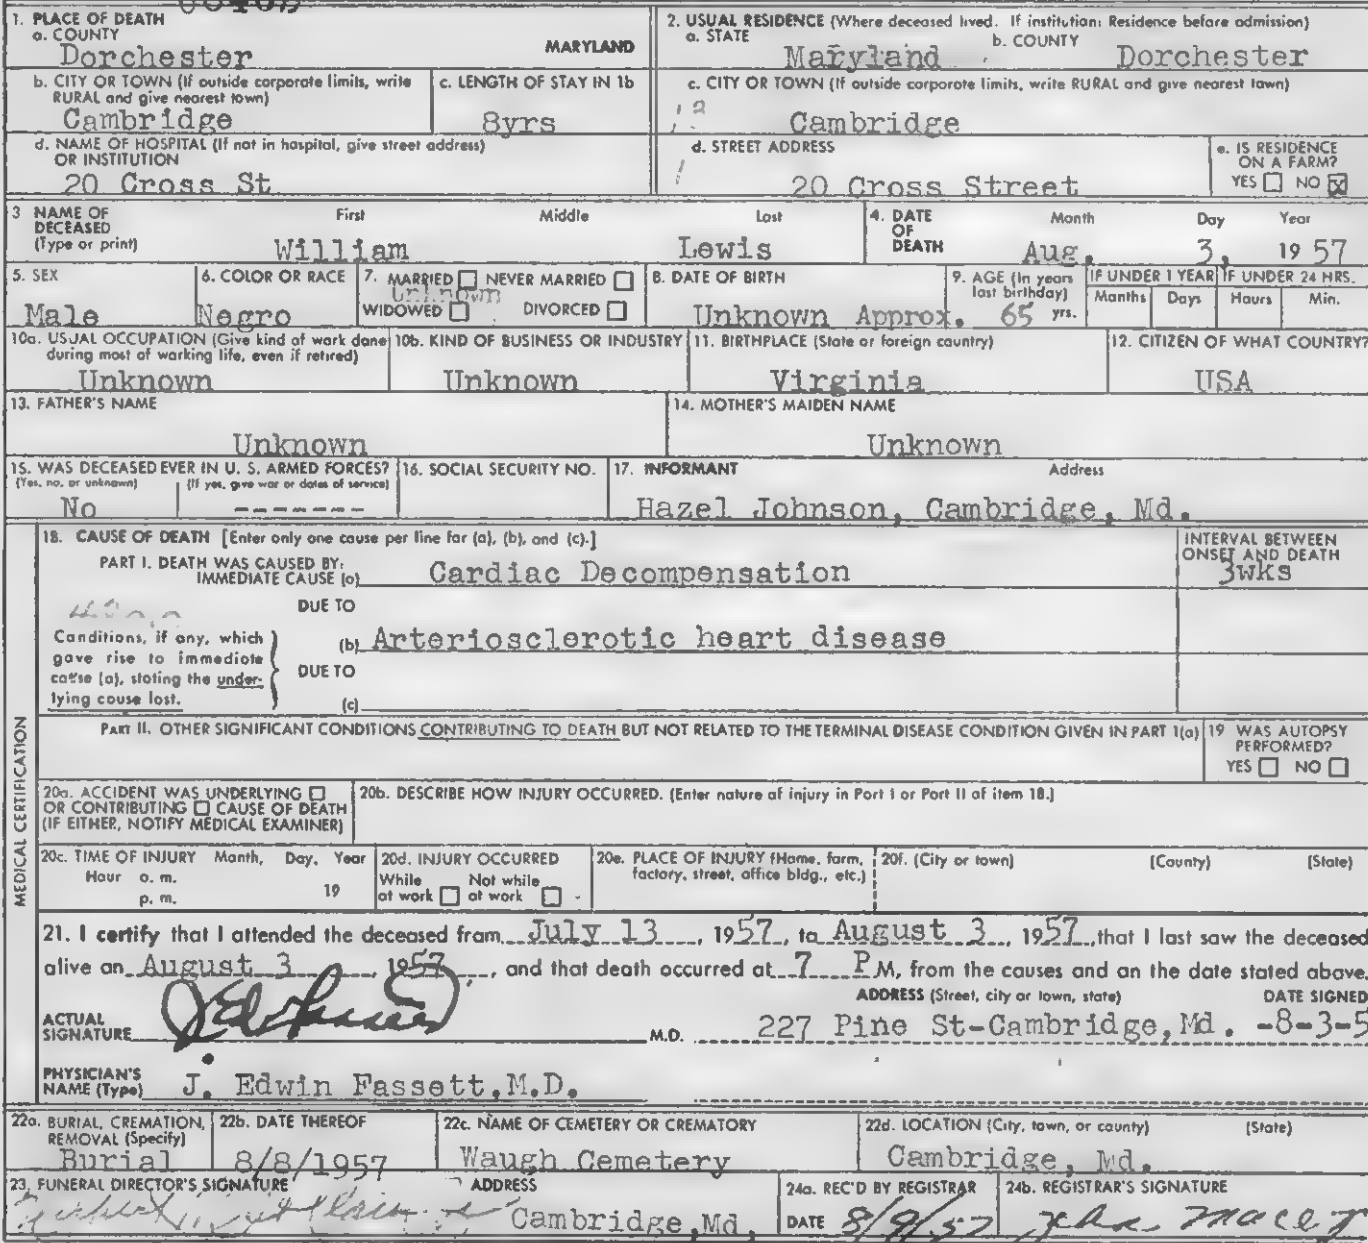 1. PLACE OF DEATH
a. COUNTY
Dorchester MARYLAND
2. USUAL RESIDENCE (Where deceased lived. If institution: Residence before admission)
a. STATE Maryland b. COUNTY Dorchester
b. CITY OR TOWN (If outside corporate limits, write RURAL and give nearest town)
Cambridge
c. LENGTH OF STAY IN 1b
8yrs
c. CITY OR TOWN (If outside corporate limits, write RURAL and give nearest town)
Cambridge
d. NAME OF HOSPITAL (If not in hospital, give street address)
OR INSTITUTION
20 Cross St
d. STREET ADDRESS
20 Cross Street
e. IS RESIDENCE ON A FARM?
YES ☐ NO ☒
3 NAME OF DECEASED (Type or print)
First Middle Last
William Lewis
4. DATE OF DEATH
Month Day Year
Aug. 3, 19 57
5. SEX
Male
6. COLOR OR RACE
Negro
7. MARRIED ☐ NEVER MARRIED ☐
Unknown
WIDOWED ☐ DIVORCED ☐
8. DATE OF BIRTH
Unknown Approx.
9. AGE (In years last birthday)
65 yrs.
IF UNDER 1 YEAR
Months Days
IF UNDER 24 HRS.
Hours Min.
10a. USUAL OCCUPATION (Give kind of work done during most of working life, even if retired)
Unknown
10b. KIND OF BUSINESS OR INDUSTRY
Unknown
11. BIRTHPLACE (State or foreign country)
Virginia
12. CITIZEN OF WHAT COUNTRY?
USA
13. FATHER'S NAME
Unknown
14. MOTHER'S MAIDEN NAME
Unknown
15. WAS DECEASED EVER IN U. S. ARMED FORCES?
(Yes, no, or unknown) (If yes, give war or dates of service)
No -------
16. SOCIAL SECURITY NO.
17. INFORMANT Address
Hazel Johnson, Cambridge, Md.
MEDICAL CERTIFICATION
18. CAUSE OF DEATH [Enter only one cause per line for (a), (b), and (c).]
INTERVAL BETWEEN ONSET AND DEATH
PART I. DEATH WAS CAUSED BY:
IMMEDIATE CAUSE (a) Cardiac Decompensation 3wks
DUE TO
Conditions, if any, which gave rise to immediate cause (a), stating the underlying cause last.
(b) Arteriosclerotic heart disease
DUE TO
(c)
PART II. OTHER SIGNIFICANT CONDITIONS CONTRIBUTING TO DEATH BUT NOT RELATED TO THE TERMINAL DISEASE CONDITION GIVEN IN PART I(a)
19 WAS AUTOPSY PERFORMED?
YES ☐ NO ☐
20a. ACCIDENT WAS UNDERLYING ☐
OR CONTRIBUTING ☐ CAUSE OF DEATH
(IF EITHER, NOTIFY MEDICAL EXAMINER)
20b. DESCRIBE HOW INJURY OCCURRED. (Enter nature of injury in Part I or Part II of item 18.)
20c. TIME OF INJURY Month, Day, Year
Hour a. m.
p. m. 19
20d. INJURY OCCURRED
While at work ☐ Not while at work ☐
20e. PLACE OF INJURY (Home, farm, factory, street, office bldg., etc.)
20f. (City or town) (County) (State)
21. I certify that I attended the deceased from July 13, 1957, to August 3, 1957, that I last saw the deceased
alive on August 3, 1957, and that death occurred at 7 P M, from the causes and on the date stated above.
ADDRESS (Street, city or town, state) DATE SIGNED
ACTUAL SIGNATURE J Edw Fassett M.D. 227 Pine St-Cambridge,Md. -8-3-5
PHYSICIAN'S NAME (Type) J. Edwin Fassett,M.D.
22a. BURIAL, CREMATION, REMOVAL (Specify)
Burial
22b. DATE THEREOF
8/8/1957
22c. NAME OF CEMETERY OR CREMATORY
Waugh Cemetery
22d. LOCATION (City, town, or county) (State)
Cambridge, Md.
23. FUNERAL DIRECTOR'S SIGNATURE ADDRESS
Cambridge,Md.
24a. REC'D BY REGISTRAR
DATE 8/9/57
24b. REGISTRAR'S SIGNATURE
John Mace Jr